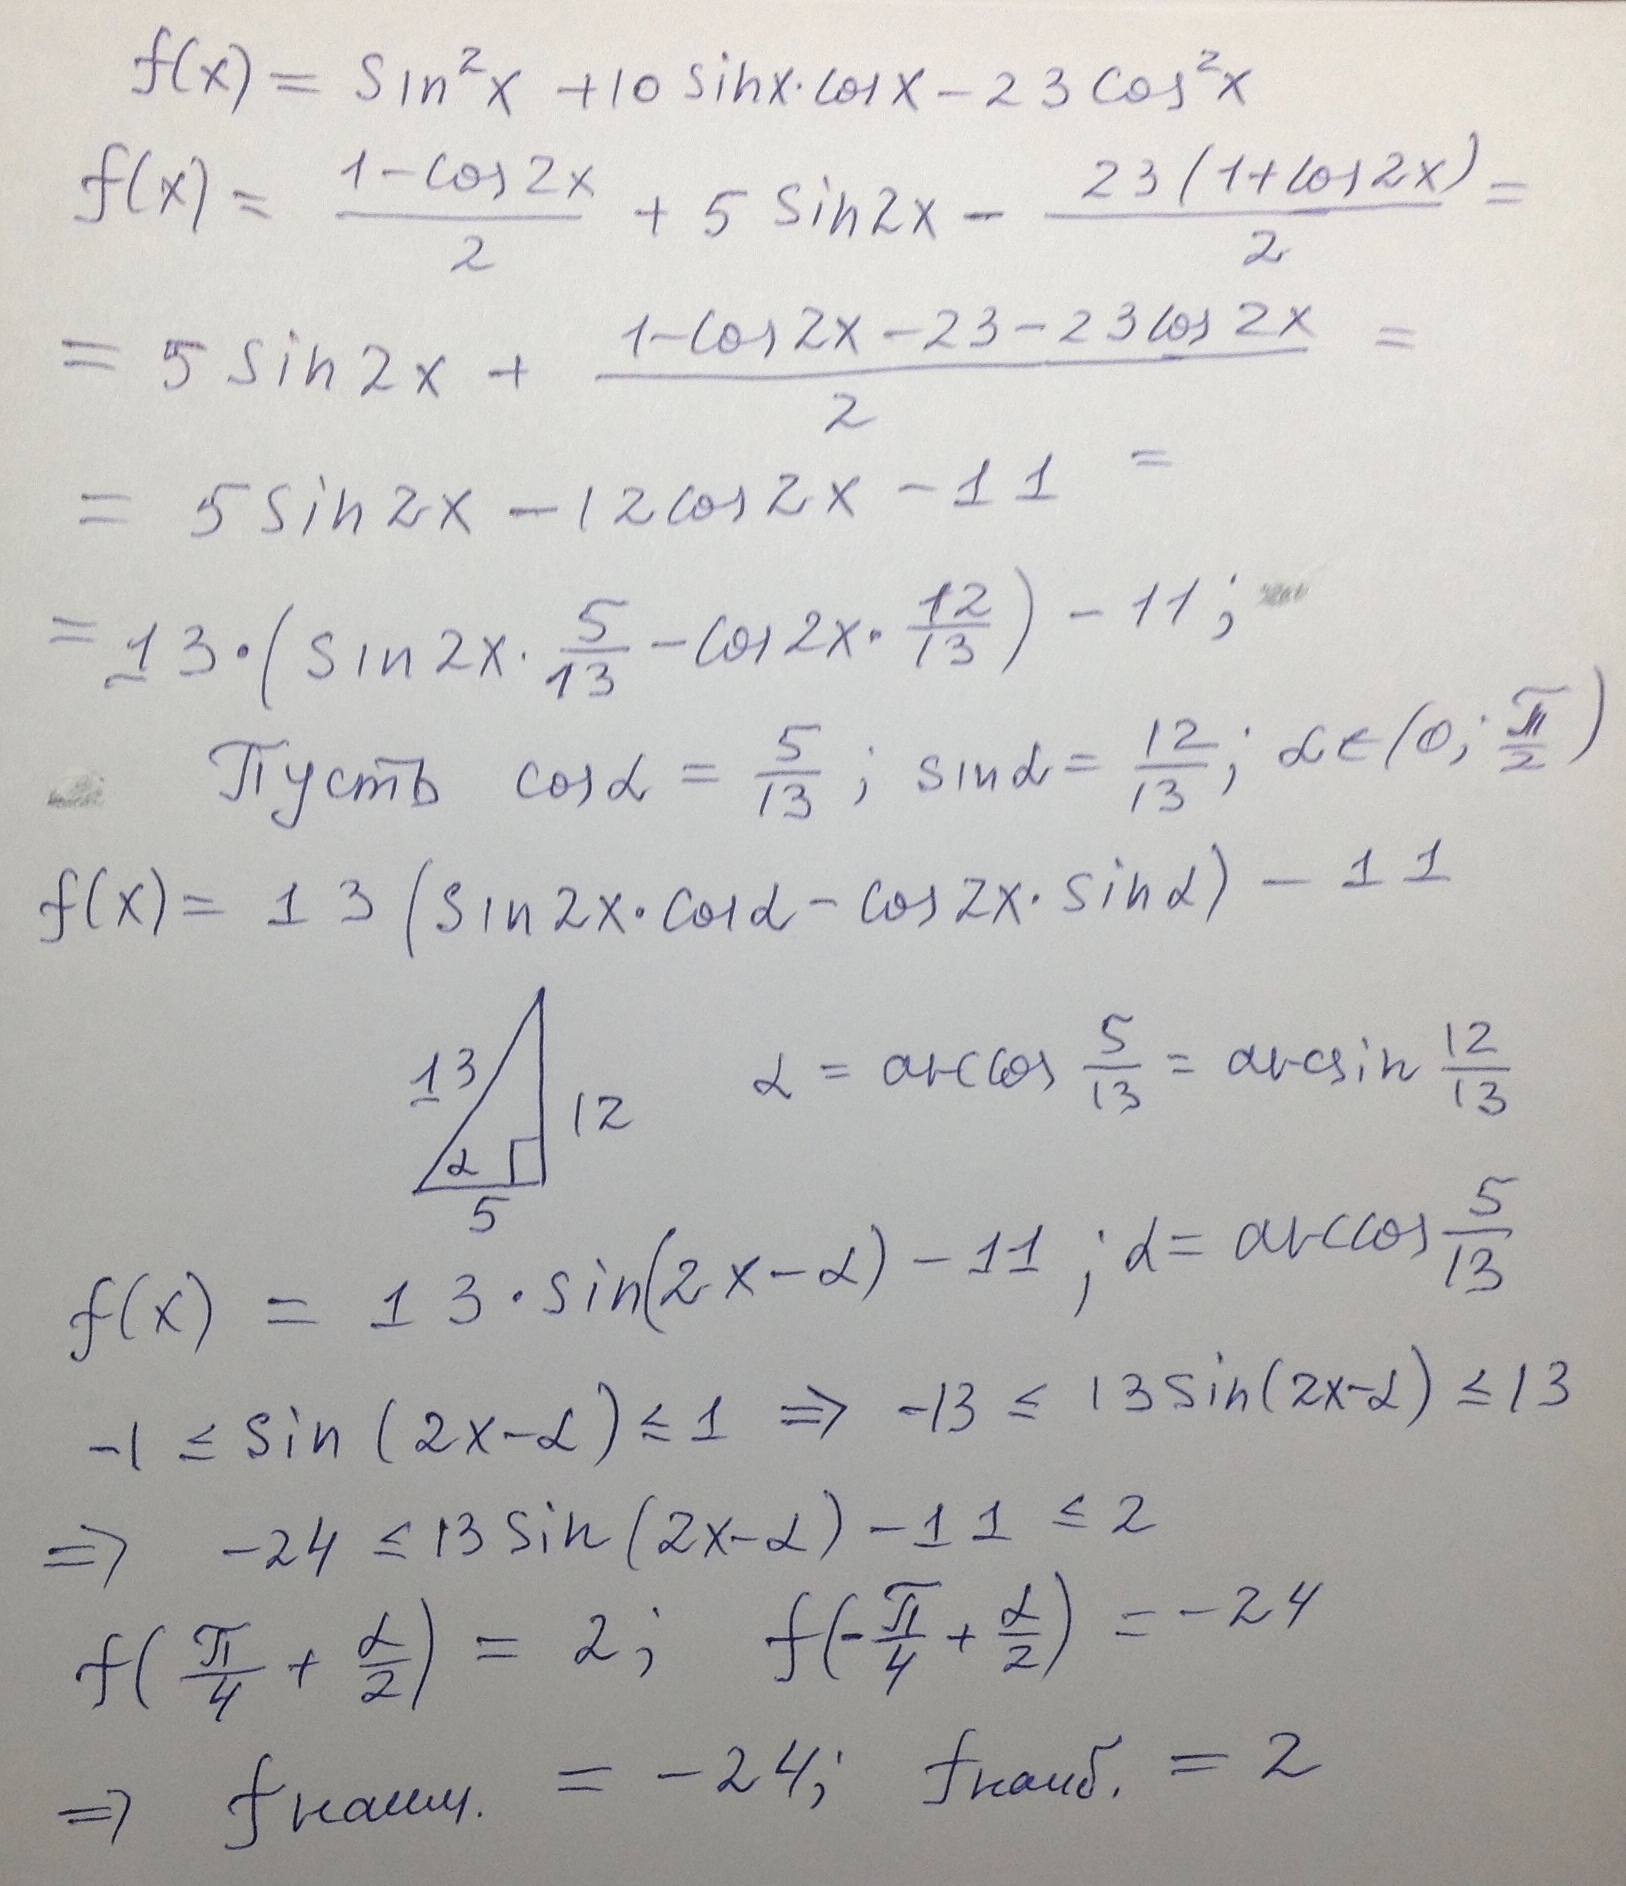 f(x) = sin²x + 10 sinx·cosx − 23 cos²x
f(x) = (1−cos2x)/2 + 5 sin2x − 23(1+cos2x)/2 =
= 5 sin2x + (1−cos2x−23−23cos2x)/2 =
= 5 sin2x − 12cos2x − 11 =
= 13·(sin2x·5/13 − cos2x·12/13) − 11;
Пусть cosα = 5/13; sinα = 12/13; α∈(0; π/2)
f(x) = 13(sin2x·cosα − cos2x·sinα) − 11
13 α 5 12
α = arccos 5/13 = arcsin 12/13
f(x) = 13·sin(2x−α) − 11; α = arccos 5/13
−1 ≤ sin(2x−α) ≤ 1 ⇒ −13 ≤ 13sin(2x−α) ≤ 13
⇒ −24 ≤ 13sin(2x−α) − 11 ≤ 2
f(π/4 + α/2) = 2; f(−π/4 + α/2) = −24
⇒ fнаим. = −24; fнаиб. = 2